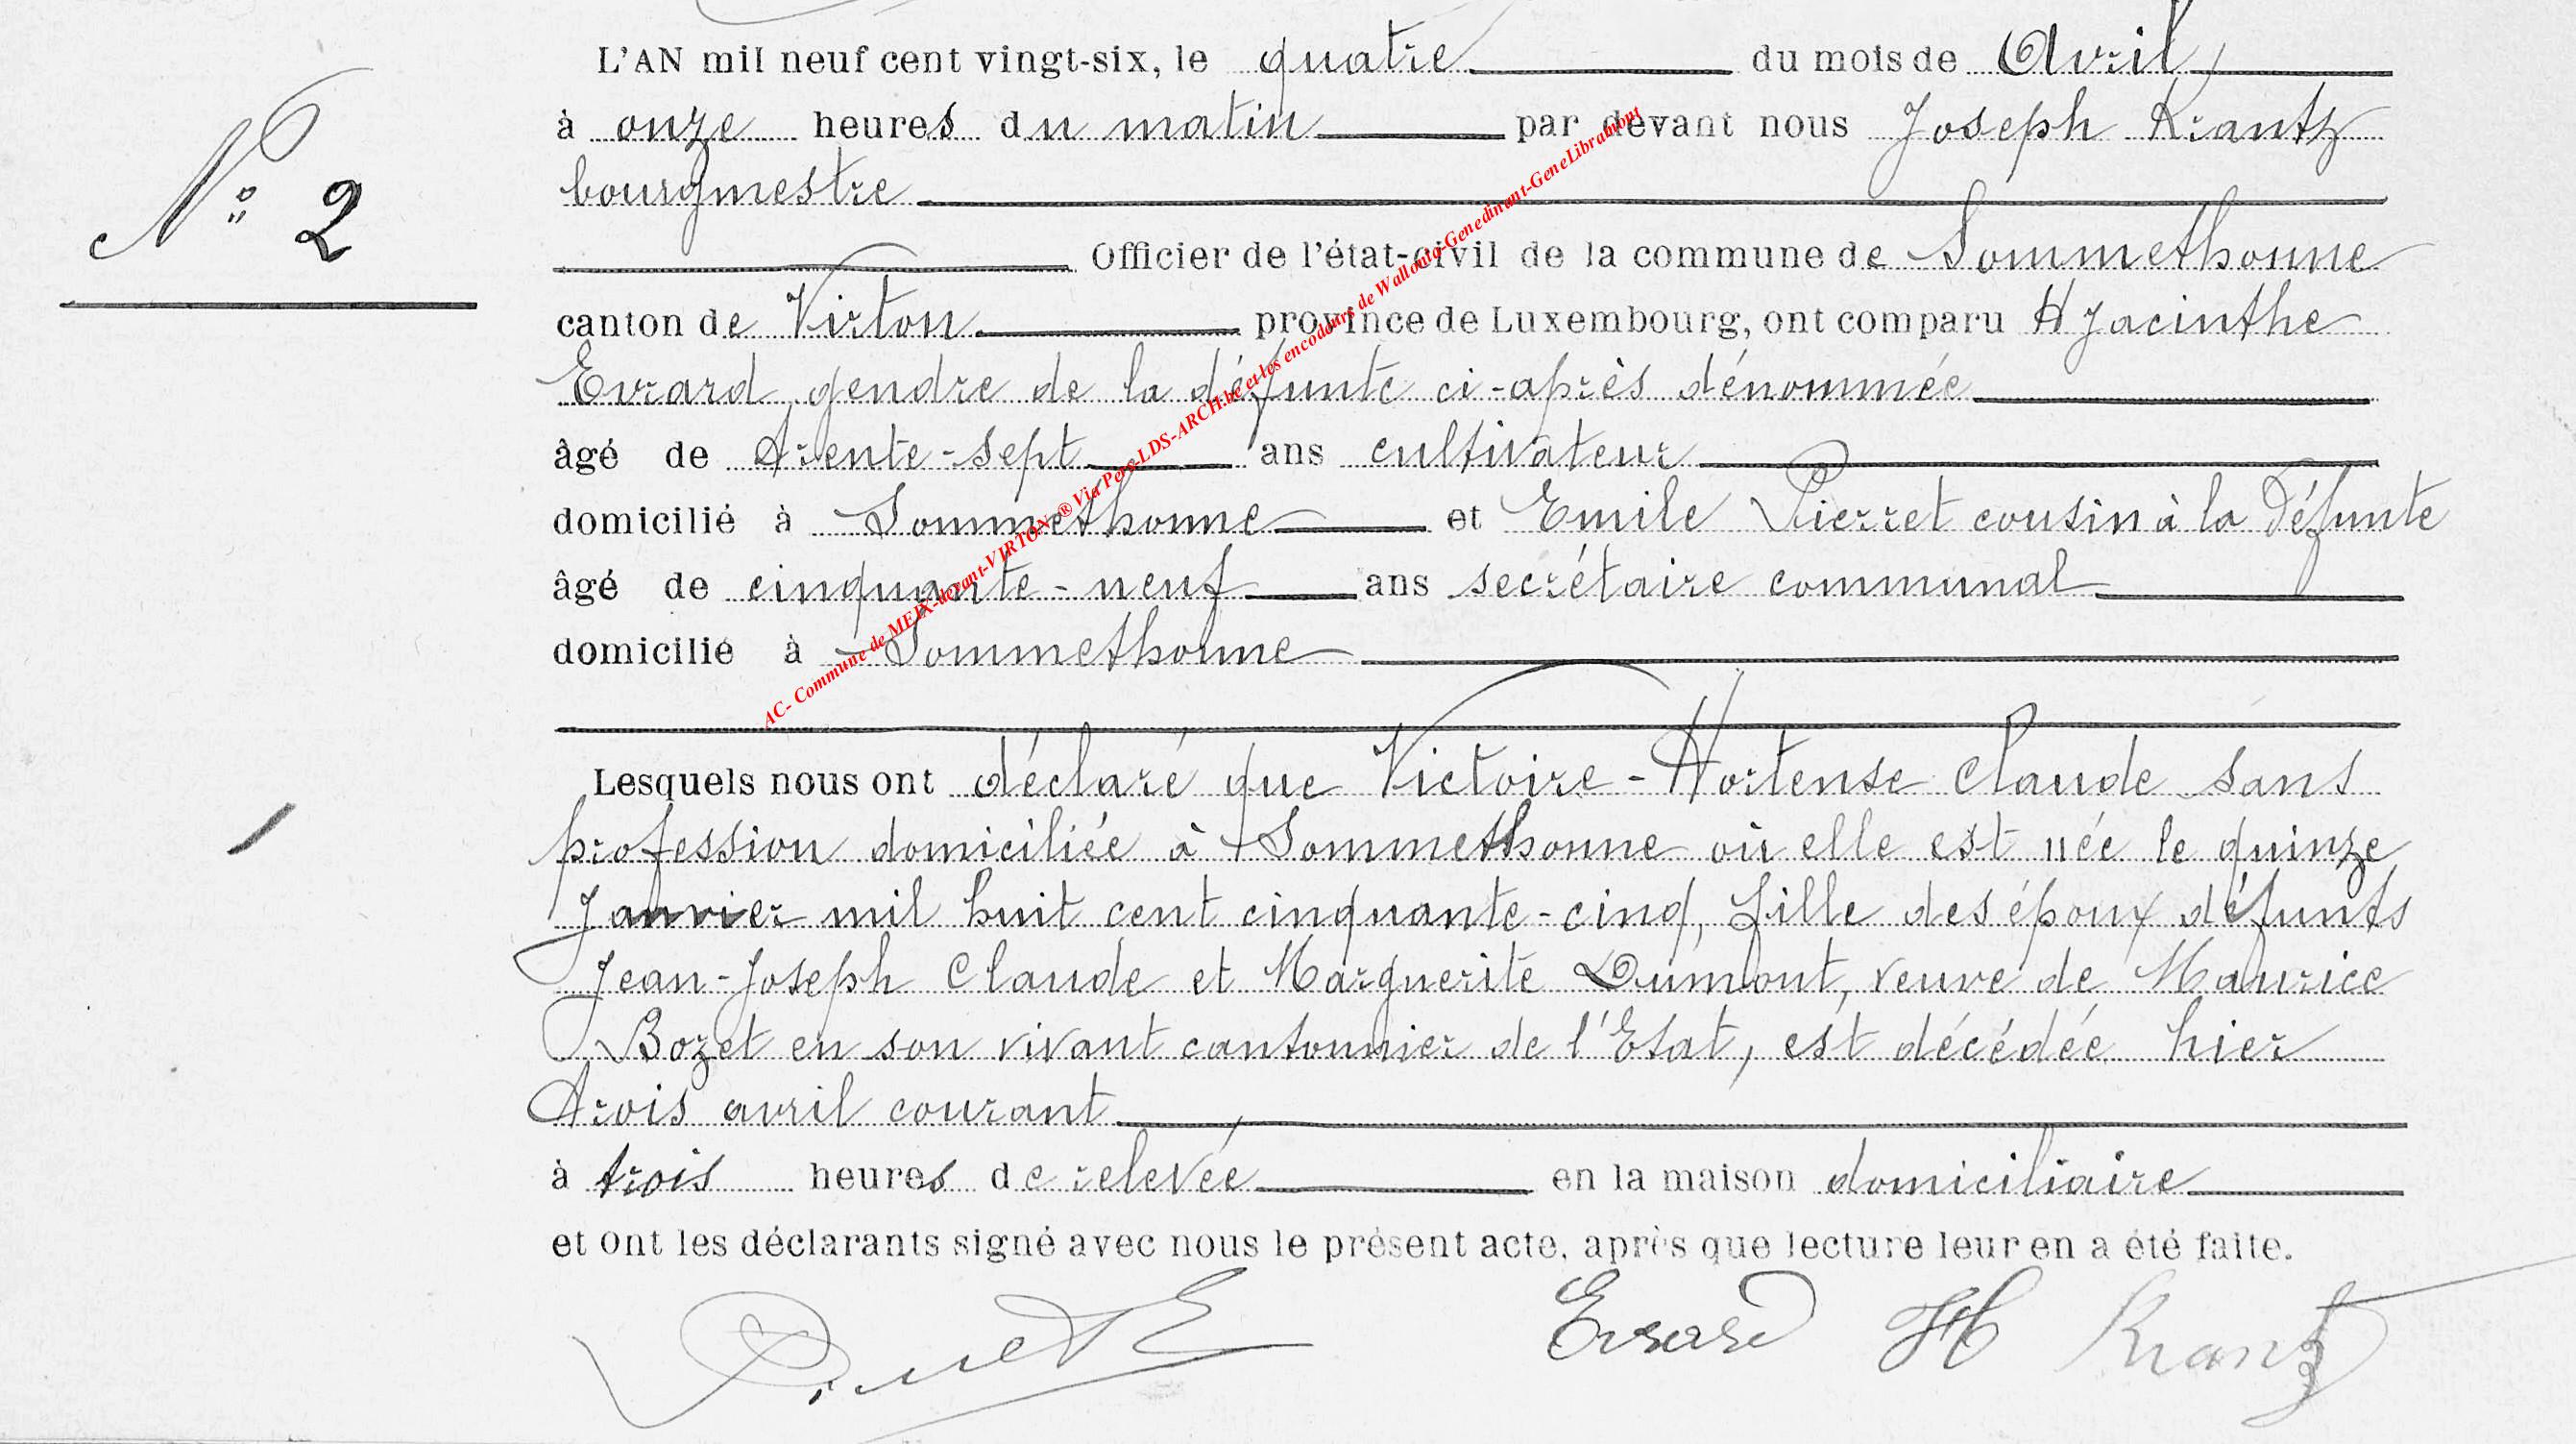 L'AN mil neuf cent vingt-six, le quatre du mois de Avril
à onze heures du matin par devant nous Joseph Krantz
bourgmestre
N° 2
Officier de l'état-civil de la commune de Sommethonne
canton de Virton province de Luxembourg, ont comparu Hyacinthe
Evrard, gendre de la défunte ci-après dénommée
âgé de trente-sept ans cultivateur
domicilié à Sommethonne et Emile Pierret cousin à la Défunte
âgé de cinquante-neuf ans secrétaire communal
domicilié à Sommethonne
AC- Commune de MEIX-devant-VIRTON ® Via Pers-LDS-ARCH.be et les encodeurs de Wallonia-Genedinant-GeneLibramont
Lesquels nous ont déclaré que Victoire-Hortense Claude sans
profession domiciliée à Sommethonne où elle est née le quinze
Janvier mil huit cent cinquante-cinq, fille des époux défunts
Jean-Joseph Claude et Marguerite Dumont, veuve de Maurice
Bozet en son vivant cantonnier de l'Etat, est décédée hier
trois avril courant
à trois heures de relevée en la maison domiciliaire
et ont les déclarants signé avec nous le présent acte, après que lecture leur en a été faite.
Pierret E Evrard H Krantz